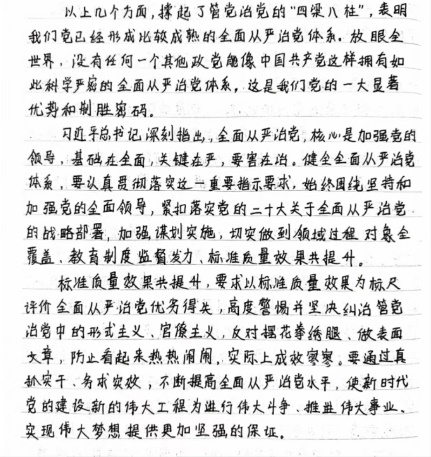 以上几个方面，撑起了管党治党的“四梁八柱”，表明
我们党已经形成比较成熟的全面从严治党体系。放眼全
世界，没有任何一个其他政党能像中国共产党这样拥有如
此科学严密的全面从严治党体系，这是我们党的一大显著
优势和制胜密码。
习近平总书记深刻指出，全面从严治党，核心是加强党的
领导，基础在全面，关键在严，要害在治。健全全面从严治党
体系，要认真贯彻落实这一重要指示要求，始终围绕坚持和
加强党的全面领导，紧扣落实党的二十大关于全面从严治党
的战略部署，加强谋划实施，切实做到领域过程对象全
覆盖、教育制度监督发力、标准质量效果共提升。
标准质量效果共提升，要求以标准质量效果为标尺
评价全面从严治党优劣得失，高度警惕并坚决纠治管党
治党中的形式主义、官僚主义，反对摆花拳绣腿、做表面
文章，防止看起来热热闹闹、实际上成效寥寥。要通过真
抓实干、务求实效，不断提高全面从严治党水平，使新时代
党的建设新的伟大工程为进行伟大斗争、推进伟大事业、
实现伟大梦想提供更加坚强的保证。